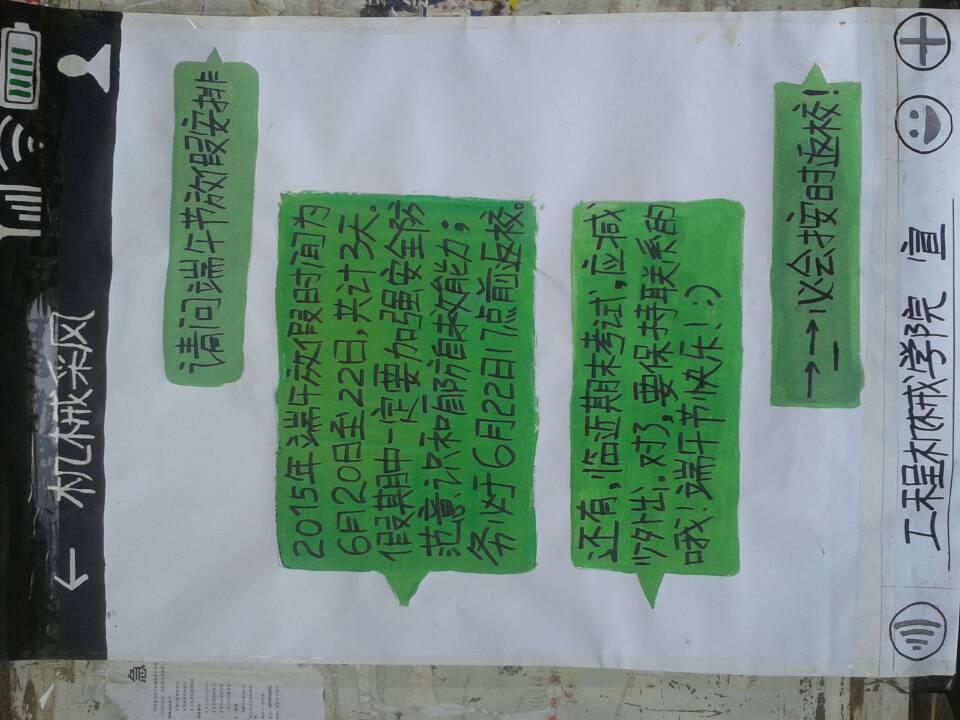 ← 机械采风
请问端午节放假安排
2015年端午放假时间为
6月20日至22日,共计3天。
假期中一定要加强安全防
范意识和自防自救能力;
务必于6月22日17点前返校。
还有,临近期末考试,应减
少外出。对了,要保持联系的
哦!端午节快乐!:)
→→必会按时返校!
工程机械学院 宣
急